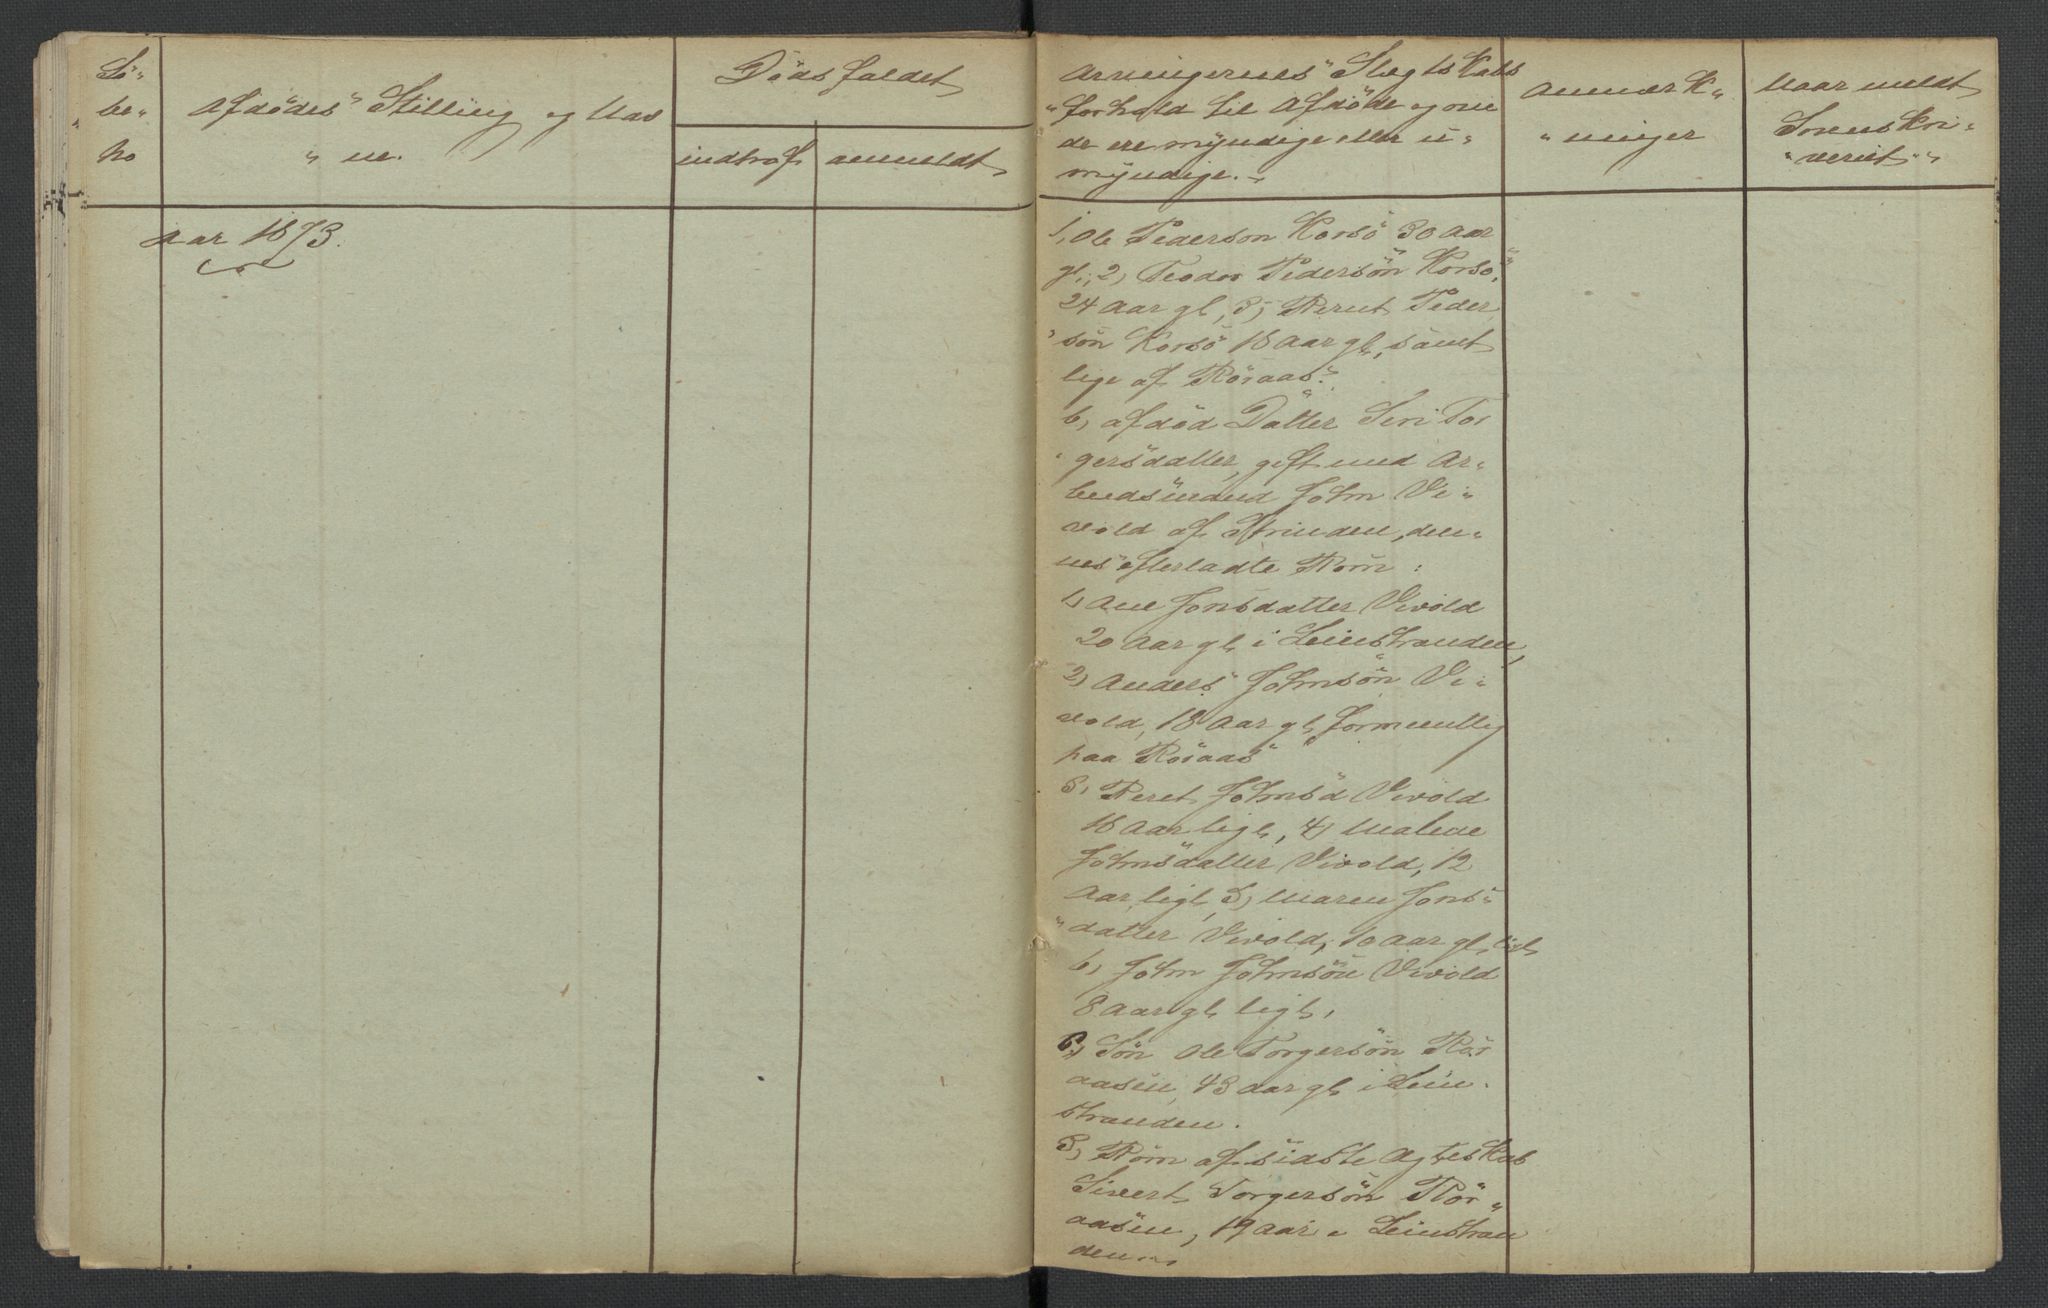 Lö-
be-
no
Afdödes Stilling og Nav
ne.
Dödsfaldet
indtraf
anmeldt
Arvingernes Slegtskabs
forhold til Afdöde og om
de ere myndige eller u-
myndige.
Anmærk-
ninger
Naar meldt
Sorenskri-
veriet
Aar 1873.
1, Ole Pederson Korsö 30 Aar
gl., 2, Teodor Pedersön Korsö,
24 Aar gl, 3, Berut Peder
sön Korsö 18 Aar gl, samt
lige af Röraas.
b, afdöd Datter Siri Tor
gersdatter, gift med Ar-
beidsmand John Vi-
vold af Strinden, den-
nes efterladte Börn:
1, Ane Jonsdatter Vivold
20 Aar gl i Leinstranden,
2, Anders Johnsön Vi-
vold, 18 Aar gl, formentlig
paa Röraas
3, Beret Johnsd Vivold
16 Aar ligl, 4, Malene
Johnsdatter Vivold, 12
Aar, ligl, 5, Maren Jons-
datter Vivold, 10 Aar gl, ligl,
6, John Johnsön Vivold
8 Aar gl ligl,
6, Sön Ole Torgersön Rör
aasen, 43 aar gl i Lein-
stranden.
B, Börn af sidste Ægteskab
Sivert Torgersön Rör
aasen, 19 aar i Leinstran
den